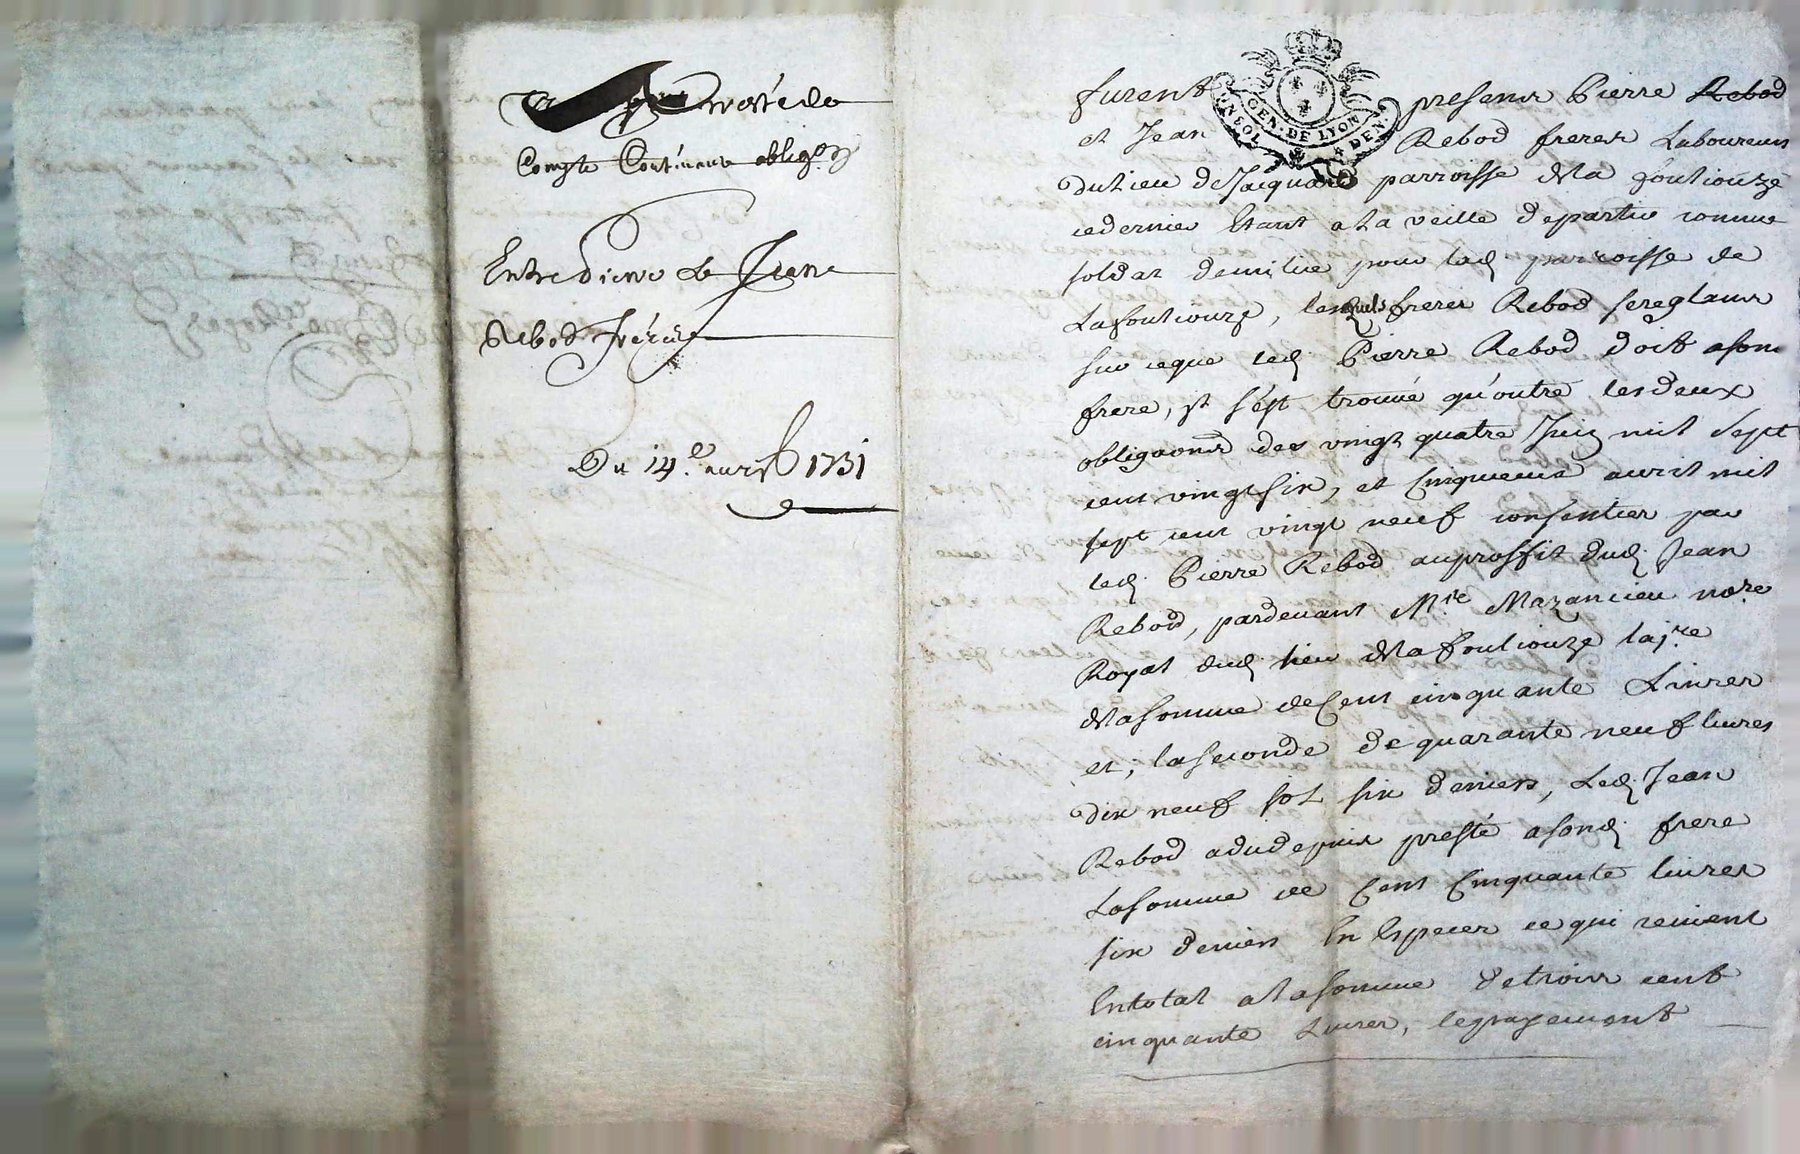 arresté de
Compte Contenant oblig.on
Entre Pierre et Jean
Rebod frères
Du 14.e avril 1731
GEN. DE LYON
furent presens Pierre Rebod
et Jean Rebod freres Laboureurs
du lieu de Jacquard parroisse de la fouliouze
ce dernier Etant a la veille de partir comme
soldat de milice pour lad. parroisse de
Lafouliouze, lesquels freres Rebod se reglant
sur ce que led. Pierre Rebod doit a son
frere, Il s'est trouué qu'outre les deux
obligaons des vingt quatre Juin mil sept
cent vingt six, et Cinquieme auril mil
sept cent vingt neuf consenties par
led. Pierre Rebod au proffit dud. Jean
Rebod, pardeuant M.re Mazancieu no.re
Royal dud. lieu de la fouliouze la j.re
de la somme de Cent cinquante Liures
et, la seconde de quarante neuf liures
dix neuf sol six deniers, Led. Jean
Rebod a du depuis presté a sond. frere
La somme de Cent Cinquante liures
six deniers En Especes ce qui reuient
En total a la somme de trois cent
cinquante Liures, le payement